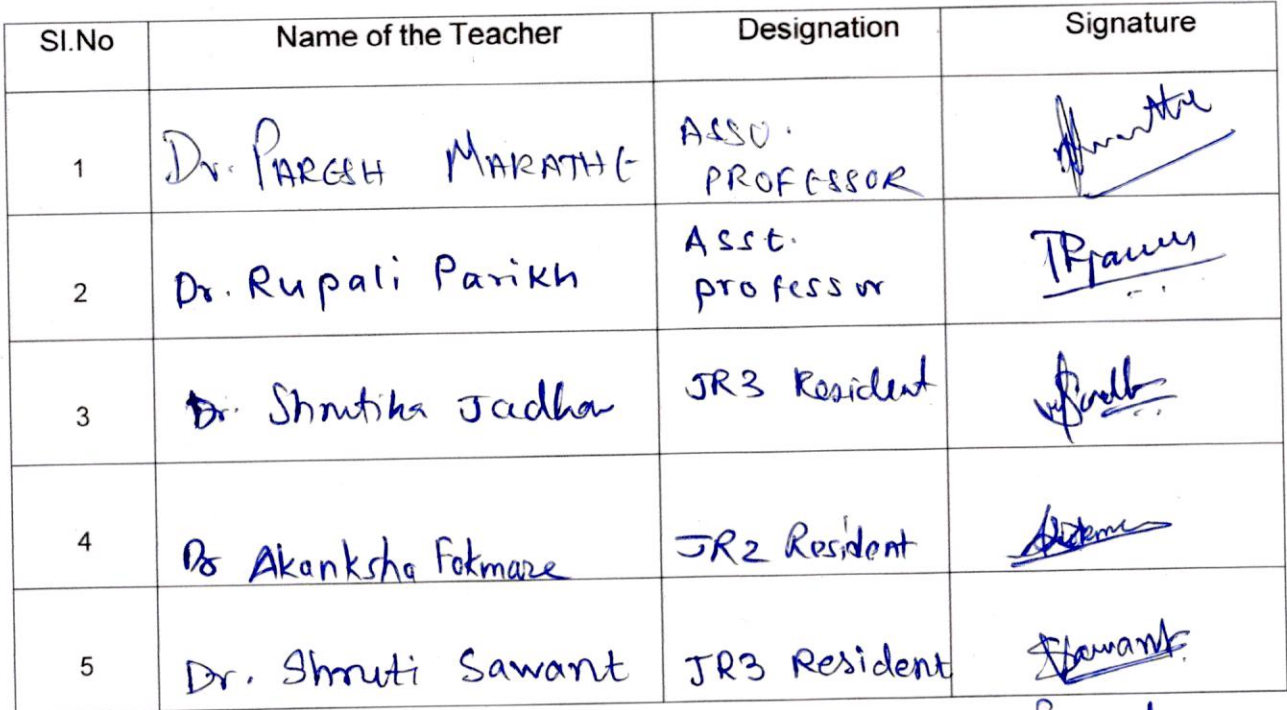 Sl.No Name of the Teacher Designation Signature
1 Dr. PARESH MARATHE ASSO. PROFESSOR
2 Dr. Rupali Parikh Asst. professor
3 Dr. Shrutika Jadhav JR3 Resident
4 Dr Akanksha Fokmare JR2 Resident
5 Dr. Shruti Sawant JR3 Resident Sawant